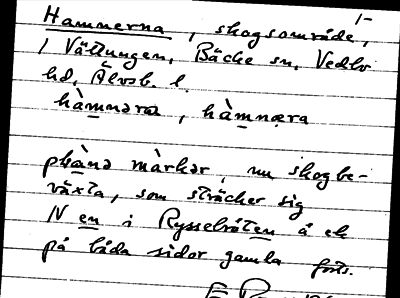 1-
Hammerna, skogsområde,
i Vättungen, Bäcke sn, Vedbo
hd, Älvsb. l.
hàmmərna, hàmnæra
plànə màrkər, nu skogbe-
växta, som sträcker sig
N en i Rysselråten å ek
på båda sidor gamla forts.